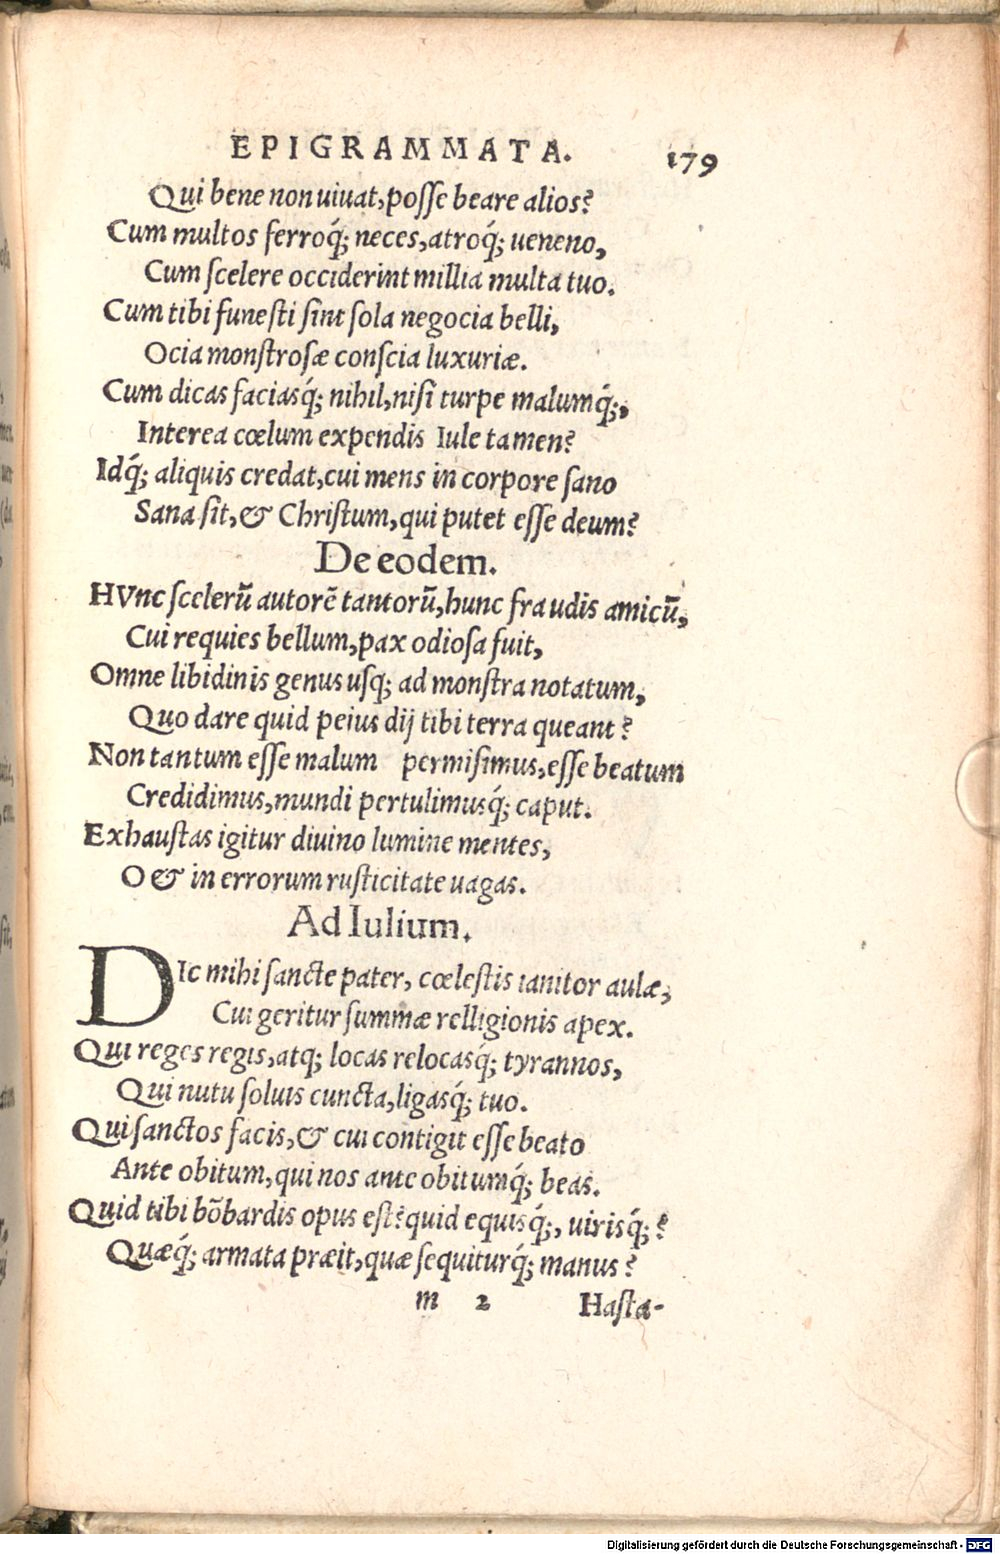 EPIGRAMMATA. 179
Qui bene non uiuat, posse beare alios?
Cum multos ferroq́; neces, atroq́; ueneno,
Cum scelere occiderint millia multa tuo.
Cum tibi funesti sint sola negocia belli,
Ocia monstrosæ conscia luxuriæ.
Cum dicas faciasq́; nihil, nisi turpe malumq́;,
Interea cœlum expendis Iule tamen?
Idq́; aliquis credat, cui mens in corpore sano
Sana sit, & Christum, qui putet esse deum?
De eodem.
HVnc scelerū autorē tantorū, hunc fraudis amicū,
Cui requies bellum, pax odiosa fuit,
Omne libidinis genus usq; ad monstra notatum,
Quo dare quid peius dij tibi terra queant?
Non tantum esse malum permisimus, esse beatum
Credidimus, mundi pertulimusq́; caput.
Exhaustas igitur diuino lumine mentes,
O & in errorum rusticitate uagas.
Ad Iulium.
DIc mihi sancte pater, cœlestis ianitor aulæ,
Cui geritur summæ relligionis apex.
Qui reges regis, atq; locas relocasq́; tyrannos,
Qui nutu soluis cuncta, ligasq́; tuo.
Qui sanctos facis, & cui contigit esse beato
Ante obitum, qui nos ante obitumq́; beas.
Quid tibi bōbardis opus est? quid equisq́;, uirisq́;?
Quæq́; armata præit, quæ sequiturq́; manus?
m 2 Hasta-
Digitalisierung gefördert durch die Deutsche Forschungsgemeinschaft - DFG